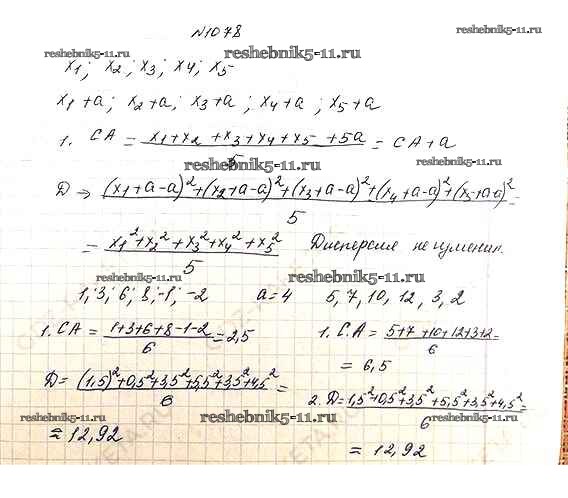 №1078
reshebnik5-11.ru
reshebnik5-11.ru
x₁; x₂; x₃; x₄; x₅
x₁+a; x₂+a; x₃+a; x₄+a; x₅+a
1. СА = (x₁+x₂+x₃+x₄+x₅+5a)/5 = СА+a
reshebnik5-11.ru
D → ((x₁+a-a)²+(x₂+a-a)²+(x₃+a-a)²+(x₄+a-a)²+(x₅+a-a)²)/5 =
= (x₁²+x₂²+x₃²+x₄²+x₅²)/5 Дисперсия не
reshebnik5-11.ru
reshebnik5-11.ru
1; 3; 6; 8; -1; -2 a=4 5, 7, 10, 12, 3, 2
1. СА = (1+3+6+8-1-2)/6 = 2,5 1. С.А = (5+7+10+12+3+2)/6 =
= 6,5
D = ((1,5)²+0,5²+3,5²+5,5²+3,5²+4,5²)/6 = 2. D = (1,5²+0,5²+3,5²+5,5²+3,5²+4,5²)/6 =
reshebnik5-11.ru
reshebnik5-11.ru
reshebnik5-11.ru
≈ 12,92 = 12,92